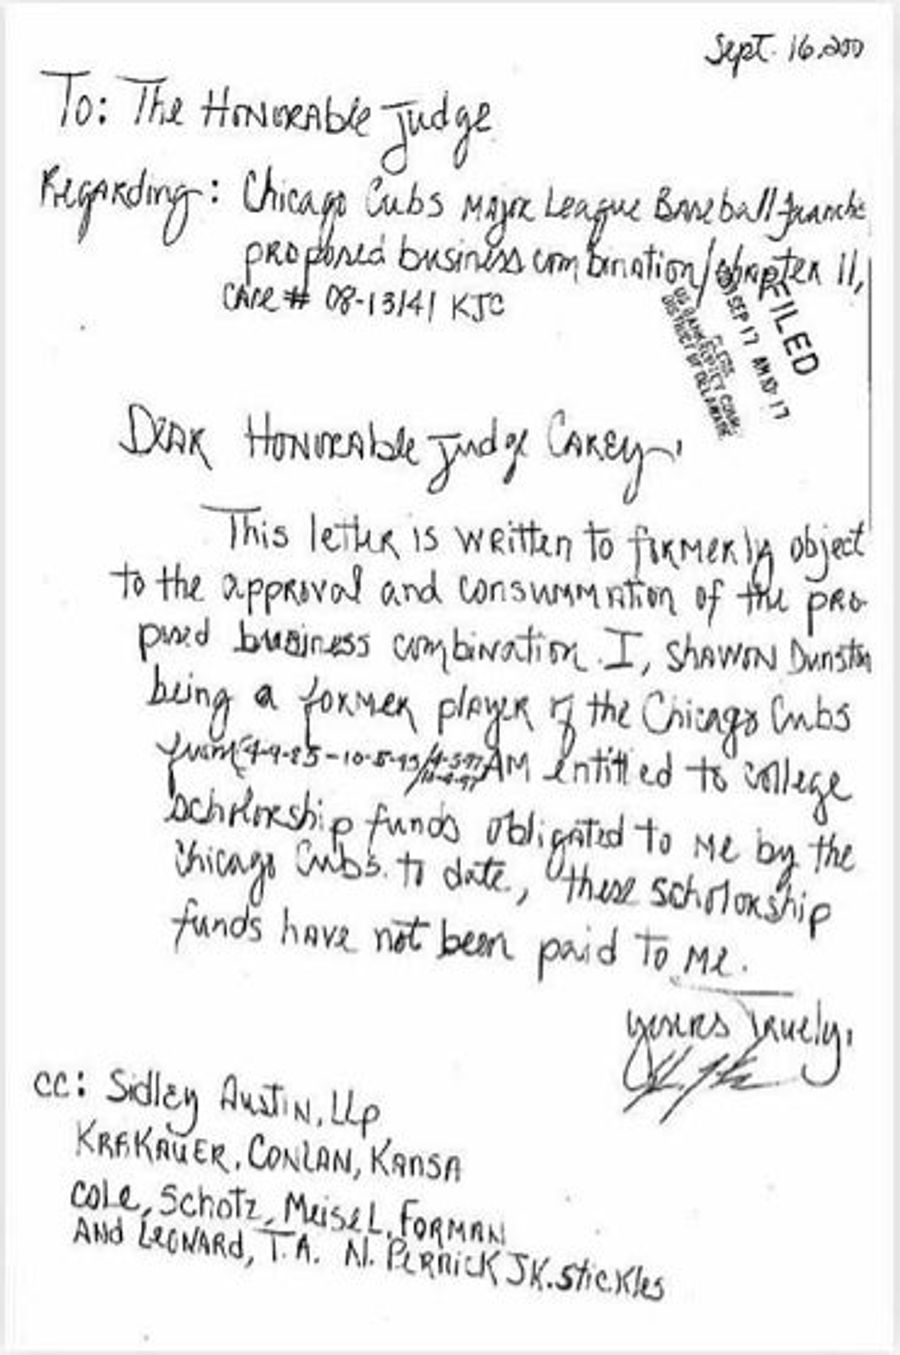 Sept. 16, 200
To: The Honorable Judge
Regarding: Chicago Cubs Major League Baseball franchi
proposed business combination/chapter 11,
case # 08-13141 KJC
FILED
SEP 17 AM 10:17
US BANKRUPTCY COURT
DISTRICT OF DELAWARE
Dear Honorable Judge Carey,
This letter is written to formerly object
to the approval and consummation of the pro-
posed business combination. I, Shawon Dunston
being a former player of the Chicago Cubs
from (4-9-85-10-5-95/4-5-97
AM entitled to college
scholorship funds obligated to me by the
Chicago Cubs. to date, these scholorship
funds have not been paid to me.
yours Truely,
cc: Sidley Austin, LLp
KRAKAUER, CONLAN, KANSA
Cole, Schotz, Meisel, Forman
And Leonard, P.A. N. Pernick JK. Stickles